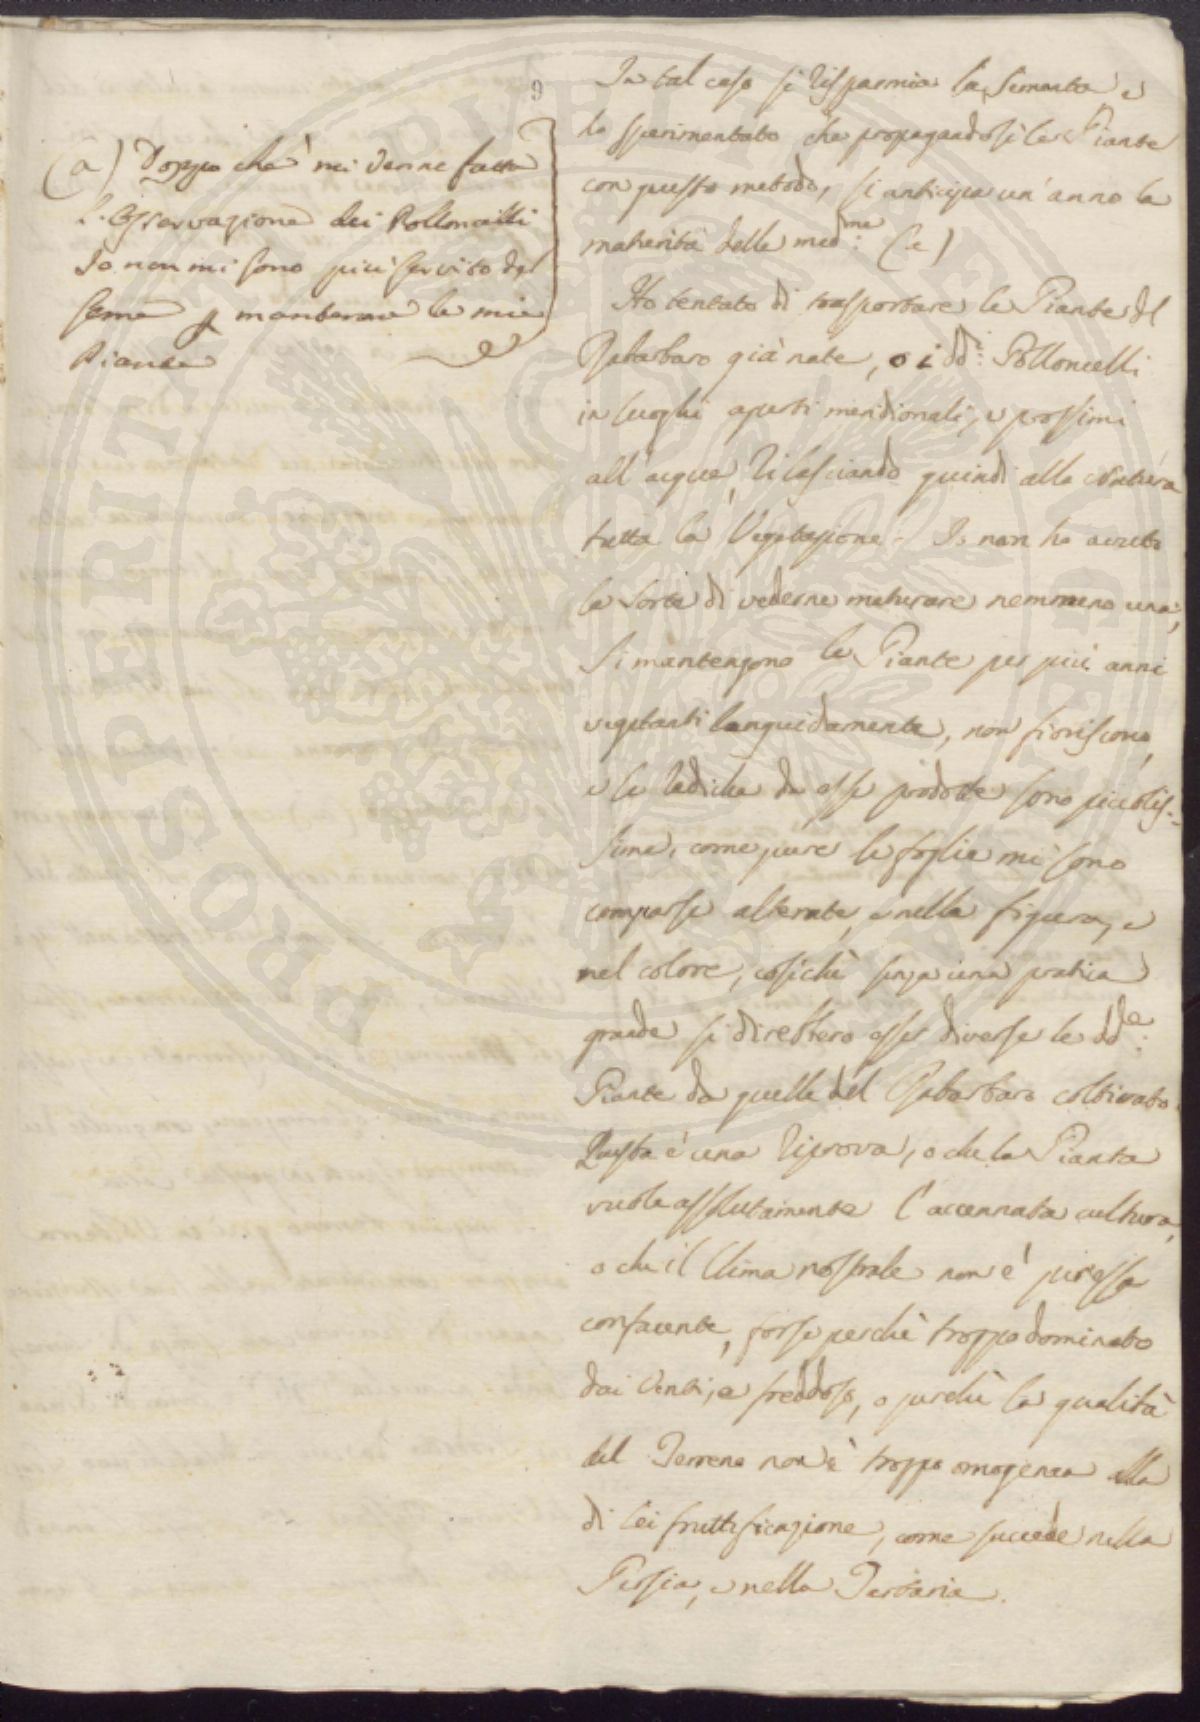 9
(a) Doppo che mi venne fatta
l'osservazione dei Polloncelli
Io non mi sono più servito del
seme p mantenere le mie
Piante
In tal caso si risparmia la Sementa e
ho sperimentato che propagandosi le Piante
con questo metodo, si anticipa un'anno la
maturità delle med:me (a)
Ho tentato di trasportare le Piante del
Rabarbaro già nate, o i dd:i Polloncelli
in luoghi aperti meridionali, e prossimi
all'acque, rilasciando quindi alla Natura
tutta la Vegetazione. Io non ho avuto
la sorte di vederne maturare nemmeno una;
Si mantengono le Piante per più anni
vegetanti languidamente, non fioriscono,
e le radiche da esse prodotte sono piccolis-
sime, come pure le foglie mi sono
comparse alterate, e nella figura, e
nel colore, cosichè senza una pratica
grande si direbbero esser diverse le dd:e
Piante da quelle del Rabarbaro coltivato.
Questa è una riprova, o che la Pianta
vuole assolutamente l'accennata cultura,
o che il Clima nostrale non è per essa
confacente, forse perchè troppo dominato
dai Venti, e freddoso, o perchè la qualità
del Terreno non è troppo omogenea alla
di lei fruttificazione, come succede nella
Persia, e nella Tartaria.
PROSPERITATI PVBLICAE AVGENDAE